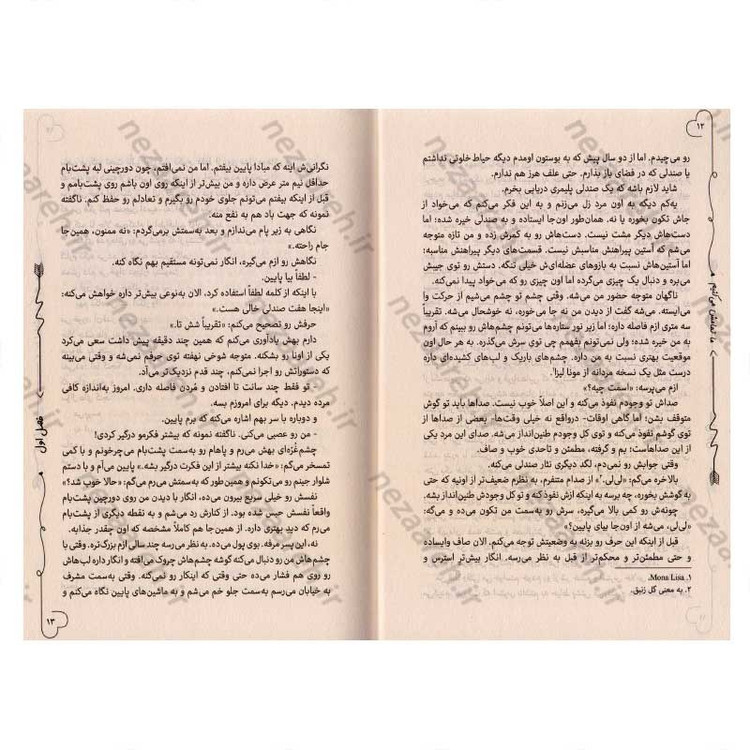 ۱۲
رو می‌چیدم. اما از دو سال پیش که به بوستون اومدم دیگه حیاط‌خلوتی نداشتم
یا صندلی که در فضای باز بذارم. حتی علف هرز هم ندارم.
شاید لازم باشه که یک صندلی پلیمری دریایی بخرم.
یه‌کم دیگه به اون مرد زل می‌زنم و به این فکر می‌کنم که می‌خواد از
جاش تکون بخوره یا نه. همان‌طور اون‌جا ایستاده و به صندلی خیره شده؛ اما
دست‌هاش دیگر مشت نیست. دست‌هاش رو به کمرش زده و من تازه متوجه
می‌شم که آستین پیراهنش مناسبش نیست. قسمت‌های دیگر پیراهنش مناسبه؛
اما آستین‌هاش نسبت به بازوهای عضله‌ای‌ش خیلی تنگه. دستش رو توی جیبش
می‌بره و دنبال یک چیزی می‌گرده اما اون چیزی رو که می‌خواد پیدا نمی‌کنه.
ناگهان متوجه حضور من می‌شه. وقتی چشم تو چشم می‌شیم از حرکت وا
می‌ایسته. می‌شه گفت از دیدن من نه جا می‌خوره، نه خوشحال می‌شه. تقریباً
سه متری ازم فاصله داره؛ اما زیر نور ستاره‌ها می‌تونم چشم‌هاش رو ببینم که آروم
به من خیره شده؛ ولی نمی‌تونم بفهمم چی توی سرش می‌گذره. به هر حال اون
موقعیت بهتری نسبت به من داره. چشم‌های باریک و لب‌های کشیده‌ای داره
درست مثل یک نسخه مردانه از مونا لیزا.۱
ازم می‌پرسه: «اسمت چیه؟»
صداش تو وجودم نفوذ می‌کنه و این اصلاً خوب نیست. صداها باید تو گوش
متوقف بشن؛ اما گاهی اوقات- درواقع نه خیلی وقت‌ها- بعضی از صداها از
توی گوشم نفوذ می‌کنه و توی کل وجودم طنین‌انداز می‌شه. صدای این مرد یکی
از این صداهاست؛ بم و گرفته، مطمئن و تاحدی خوب و صاف.
وقتی جوابش رو نمی‌دم، لگد دیگری نثار صندلی می‌کنه.
بالاخره می‌گم: «لی‌لی.۲» از صدام متنفرم، به نظرم ضعیف‌تر از اونیه که حتی
به گوشش بخوره، چه برسه به اینکه ازش نفوذ کنه و تو کل وجودش طنین‌انداز بشه.
چونه‌ش رو کمی بالا می‌گیره، سرش رو به‌سمت من تکون می‌ده و می‌گه:
«لی‌لی، می‌شه از اون‌جا بیای پایین؟»
قبل از اینکه این حرف رو بزنه به وضعیتش توجه می‌کنم. الان صاف وایساده
و حتی مطمئن‌تر و محکم‌تر از قبل به نظر می‌رسه. انگار بیش‌تر استرس و
۱. Mona Lisa.
۲. به معنی گل زنبق.
ما تمامش می‌کنیم
نگرانی‌ش اینه که مبادا پایین بیفتم. اما من نمی‌افتم، چون دورچینی لبه پشت‌بام
حداقل نیم متر عرض داره و من بیش‌تر از اینکه روی اون باشم روی پشت‌بامم و
قبل از اینکه بیفتم می‌تونم جلوی خودم رو بگیرم و تعادلم رو حفظ کنم. ناگفته
نمونه که جهت باد هم به نفع منه.
نگاهی به زیر پام می‌ندازم و بعد به‌سمتش برمی‌گردم: «نه ممنون، همین‌جا
جام راحته.»
نگاهش رو ازم می‌گیره، انگار نمی‌تونه مستقیم بهم نگاه کنه.
- لطفاً بیا پایین.
با اینکه از کلمه لطفاً استفاده کرد، الان به‌نوعی بیش‌تر داره خواهش می‌کنه:
«اینجا هفت صندلی خالی هست.»
حرفش رو تصحیح می‌کنم: «تقریباً شش تا.»
دارم بهش یادآوری می‌کنم که همین چند دقیقه پیش داشت سعی می‌کرد
یکی از اونا رو بشکنه. متوجه شوخی نهفته توی حرفم نمی‌شه و وقتی می‌بینه
که دستوراتش رو اجرا نمی‌کنم، چند قدم نزدیک‌تر می‌آد.
- تو فقط چند سانت تا افتادن و مُردن فاصله داری. امروز به‌اندازه کافی
مرده دیدم. دیگه برای امروزم بسه.
و دوباره با سر بهم اشاره می‌کنه که برم پایین.
- من رو عصبی می‌کنی. ناگفته نمونه که بیشتر فکرمو درگیر کردی!
چشم‌غُرّه‌ای بهش می‌رم و پاهام رو به‌سمت پشت‌بام می‌چرخونم و با کمی
تمسخر می‌گم: «خدا نکنه بیشتر از این فکرت درگیر بشه.» پایین می‌آم و با دستم
شلوار جینم رو می‌تکونم و همین‌طور که به‌سمتش می‌رم می‌گم: «حالا خوب شد؟»
نفسش رو خیلی سریع بیرون می‌ده، انگار با دیدن من روی دورچین پشت‌بام
واقعاً نفسش حبس شده بود. از کنارش رد می‌شم و به نقطه دیگری از پشت‌بام
می‌رم که دید بهتری داره. از همین‌جا هم کاملاً مشخصه که اون چقدر جذابه.
نه، این پسر مرفه. بوی پول می‌ده. به نظر می‌رسه چند سالی ازم بزرگ‌تره. وقتی با
چشم‌هاش من رو دنبال می‌کنه گوشه چشم‌هاش چروک می‌افته و انگار داره لب‌هاش
رو روی هم فشار می‌ده حتی وقتی که اینکار رو نمی‌کنه. وقتی به‌سمت مشرف
به خیابان می‌رسم به‌سمت جلو خم می‌شم و به ماشین‌های پایین نگاه می‌کنم و
فصل اول
۱۳
nezaareh.ir